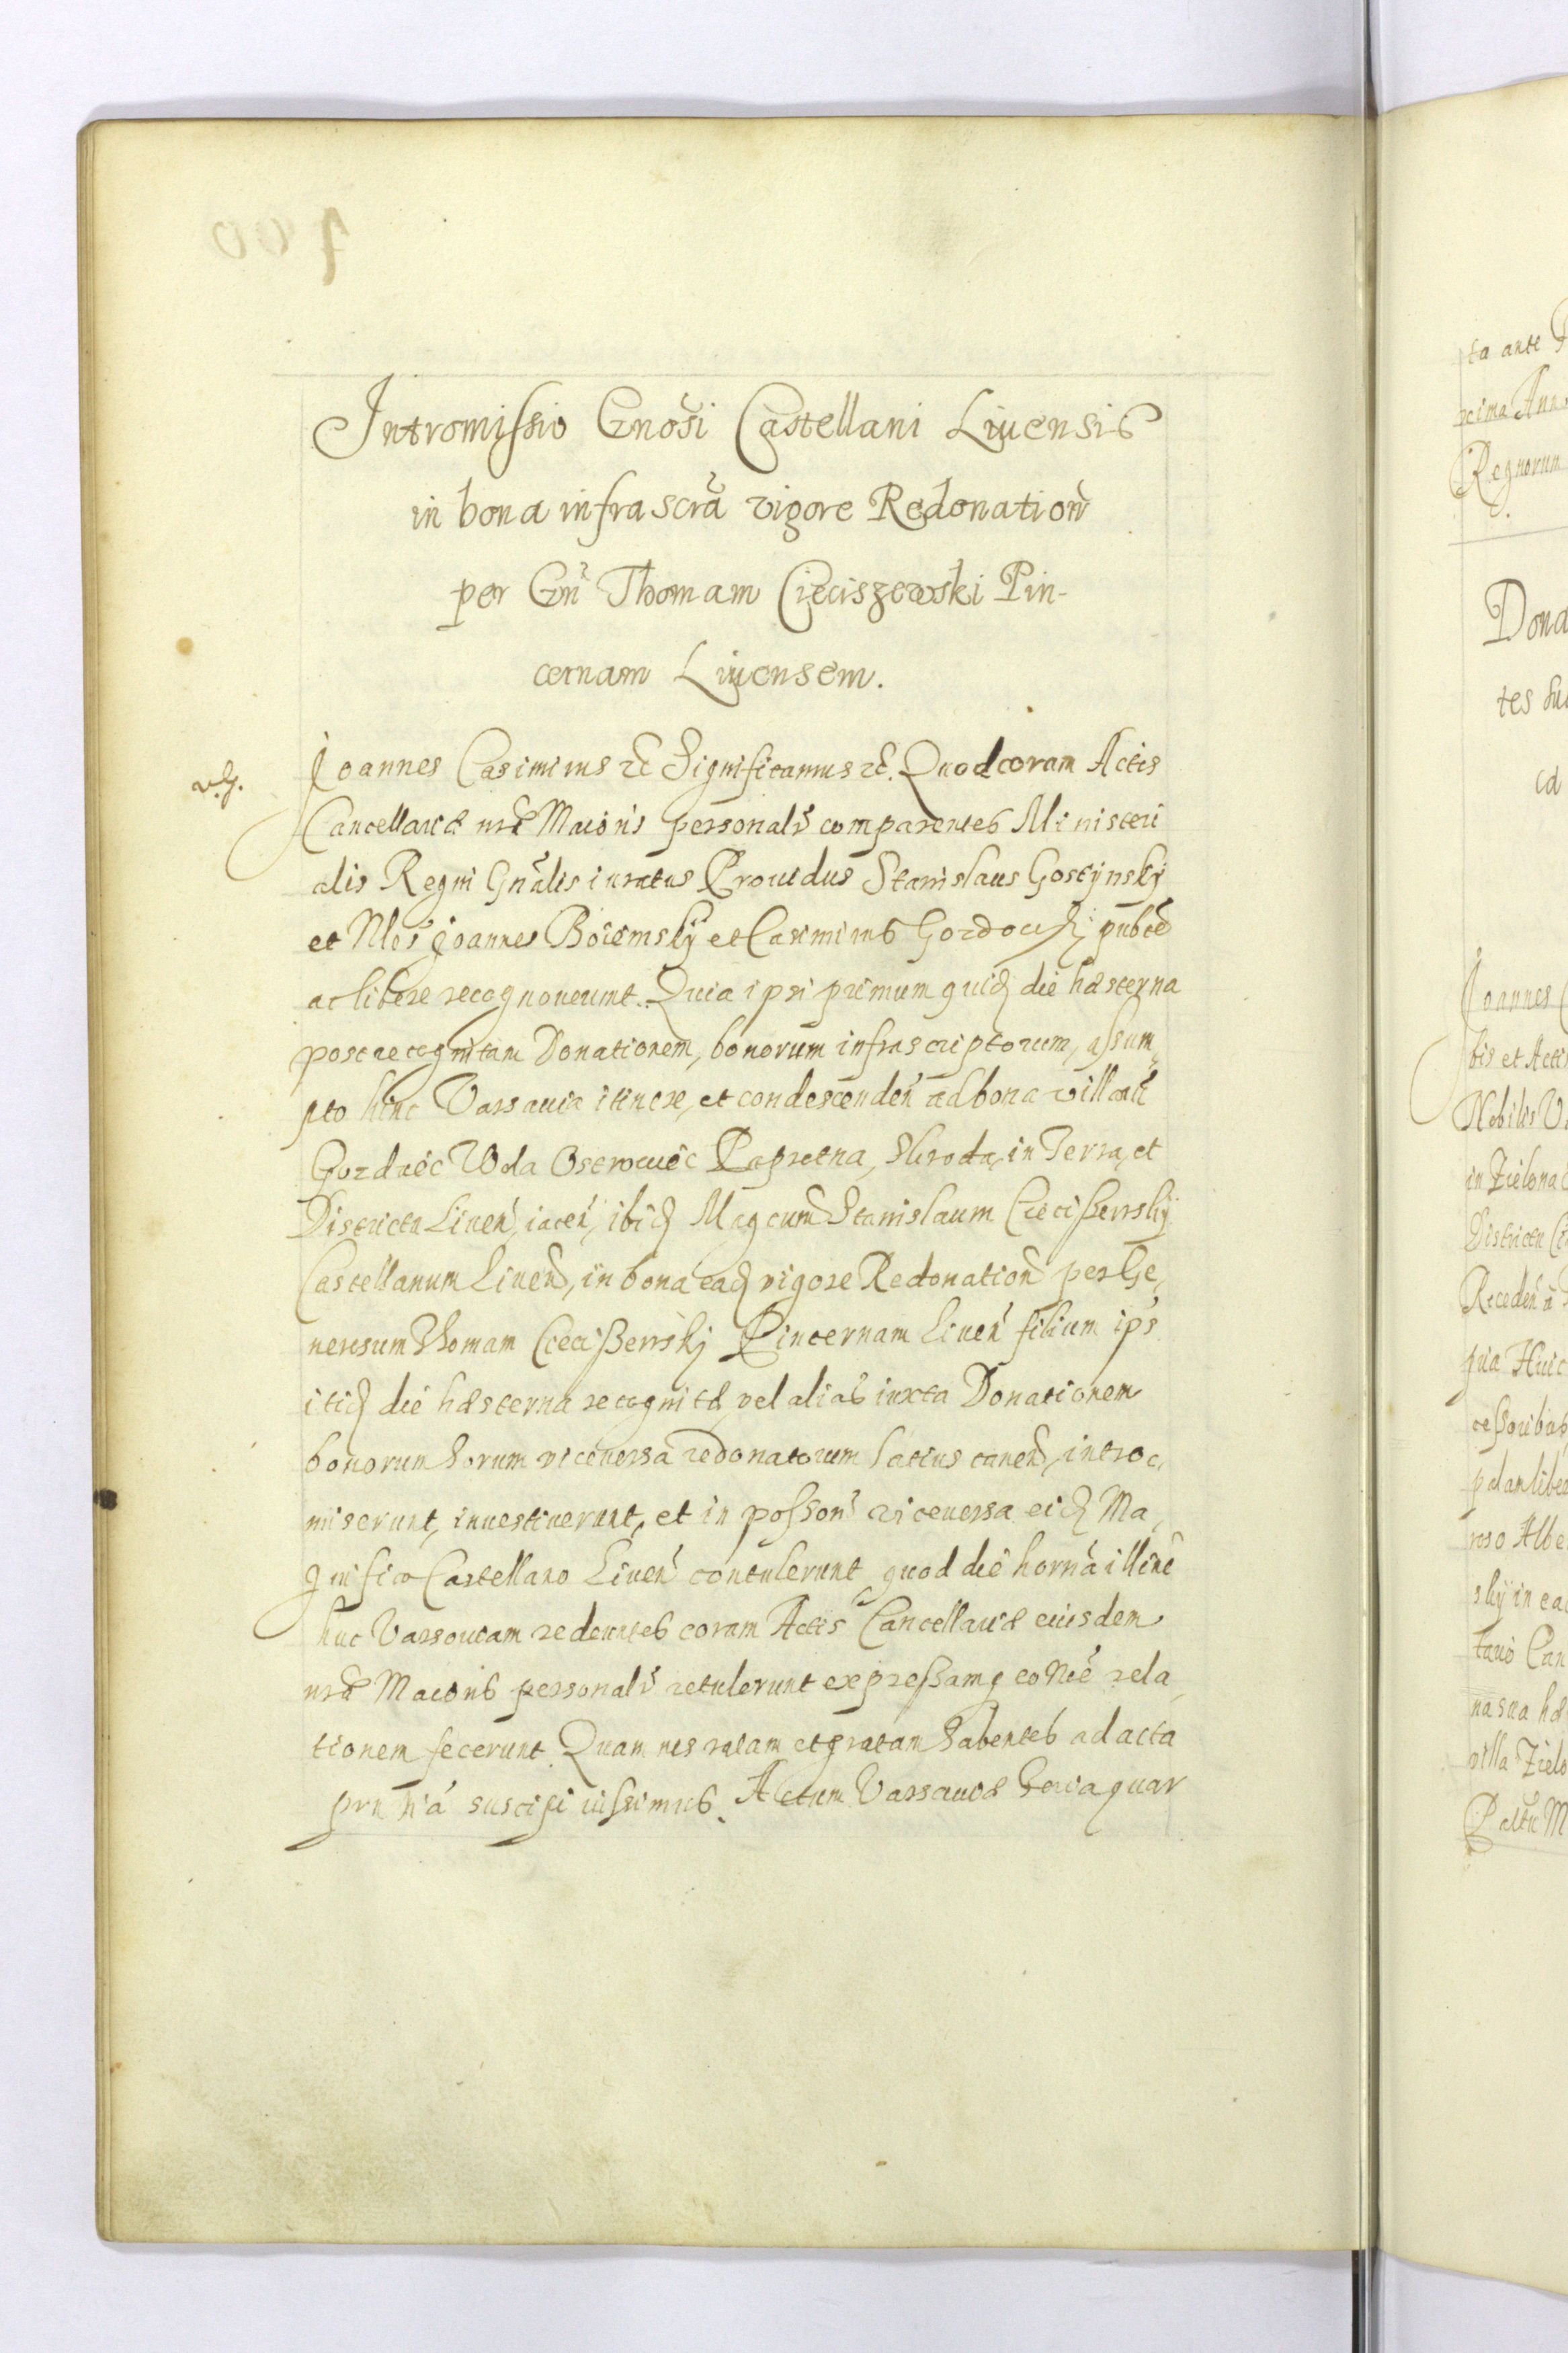 Intromissio Gnosi Castellani Liuensis
in bona infrascrã vigore Redonation̄
per Gn̄ Thomam Cieciszewski Pin-
cernam Liuensem.
v. g.
Joannes Casimirus etc Significamus etc. Quod coram Actis
Cancellariæ nræ Maioris personalr̄ comparentes Ministeri
alis Regni Gnãlis iuratus Prouidus Stanislaus Gostÿnskÿ
et Nles Joannes Boiemskÿ et Casimirus publ̃e
ac libere recognouerunt. Quia ipsi primum quid die hæsterna
post recognitam Donationem, bonorum infrascriptorum, assum,
pto hinc Varsauia itinere, et condescenden̄ ad bona villarū
Gozdaèc Wola Oserowiec Paprotna, Skroda, in Terra, et
Districtu Liuen̄, iacen̄, ibid Mag cum Stanislaum Ciecißewskÿ
Castellanum Liuen̄, in bona ead vigore Redonation̄ per Ge,
nerosum Thomam Ciecißewskj Pincernam Liuen̄ filium ips
itid die hæsterna recognitæ, vel alias iuxta Donationem
bonorum horum viceuersa redonatorum latius tanen̄, introc,
miserunt, inuestiuerunt, et in posson̄ viceuersa eid Ma,
gnifico Castellano Liuen̄ contulerunt, quod die horná illinc
huc Varsouiam redeuntes coram Actis Cancellariæ eiusdem
nræ Maioris personalr̄ retulerunt expressamq eo Nīe rela,
tionem fecerunt. Quam nos ratam et gratam habentes ad acta
prn ná suscipi iussimus. Actum Varsauiæ feria quar
ta ante
xcima Anno
Regnorum
Dona
tes
cd
Joannes
bis et Actis
Nobilis
in Zielona
Districtu
Receden̄ à
qua Huic
cessoribus
pdam libere
roso Albe
skÿ in ea
Can
na sua hæ
villa Zielo
Paltū M